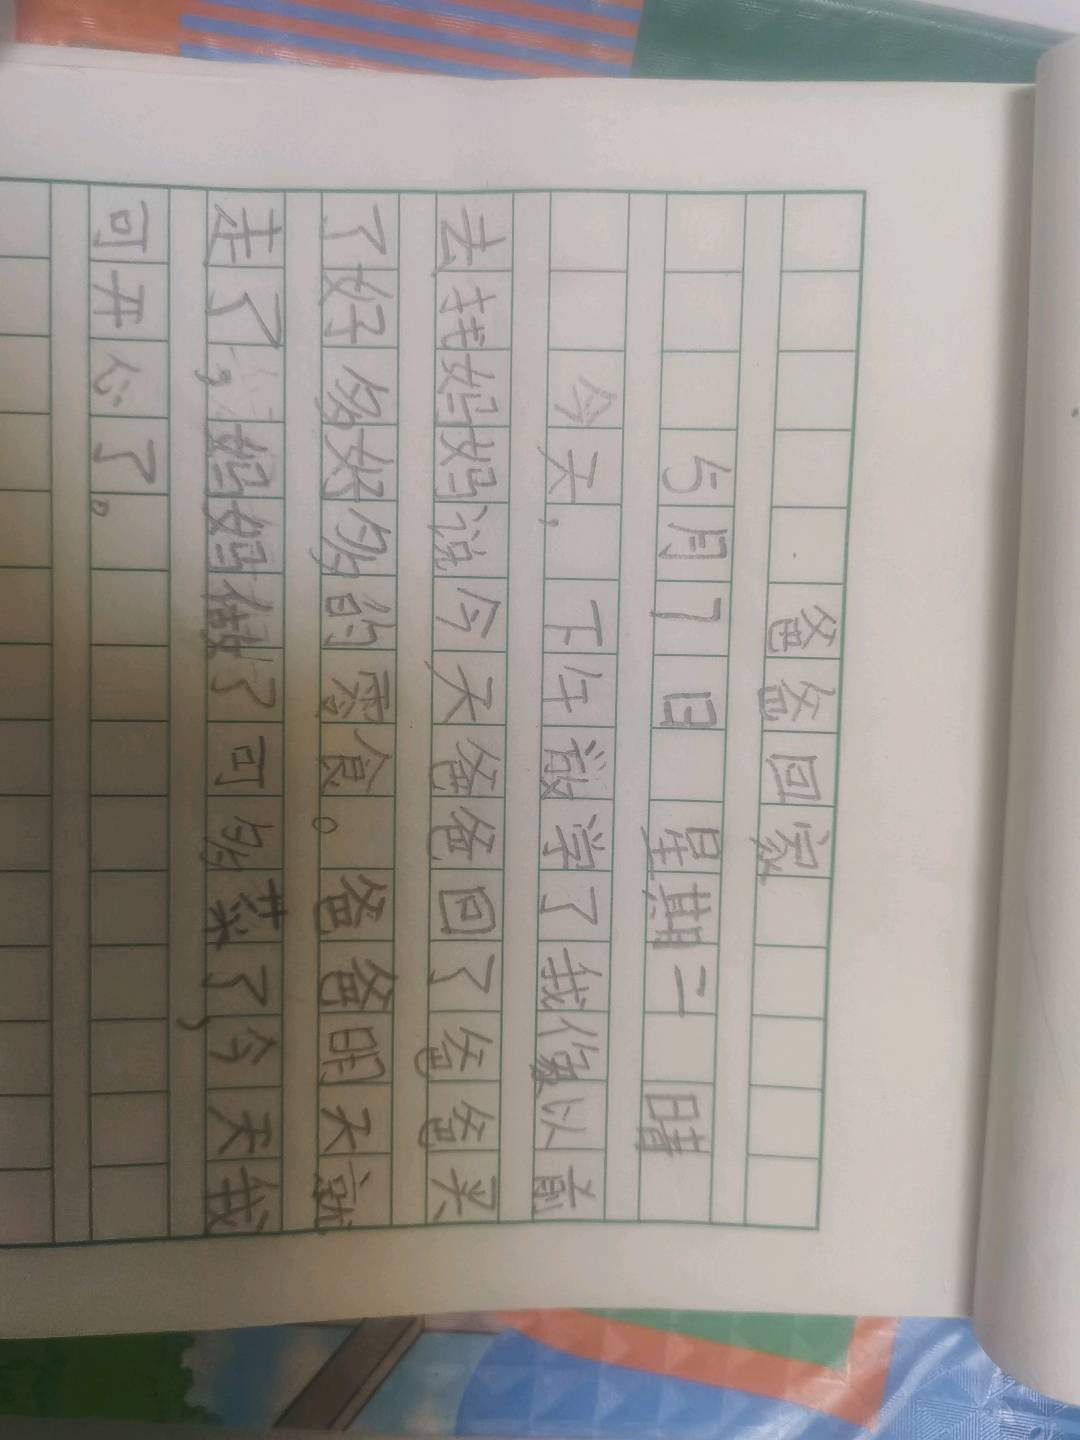 爸爸回家
5月7日 星期二 晴
今天,下午放学了我像以前
去找妈妈说今天爸爸回了爸爸买
了好多好多的零食。爸爸明天就
走了,妈妈做了可多菜了,今天我
可开心了。